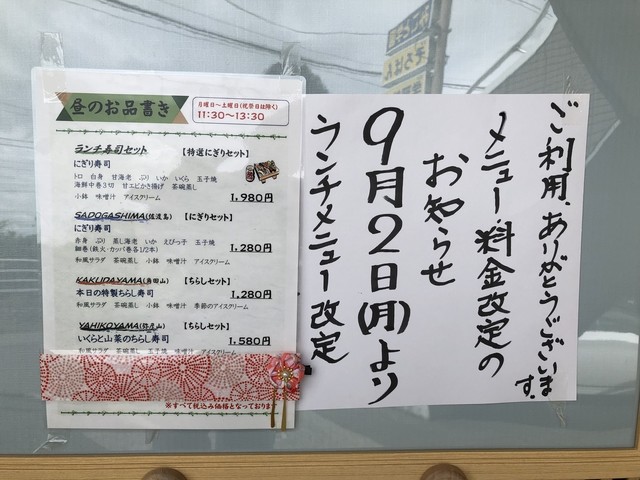 昼のお品書き
月曜日～土曜日(祝祭日は除く)
11:30～13:30
ランチ寿司セット 【特選にぎりセット】
にぎり寿司
トロ 白身 甘海老 ぶり いか いくら 玉子焼
海鮮中巻3切 甘エビかき揚げ 茶碗蒸し
小鉢 味噌汁 アイスクリーム
1,980円
SADOGASHIMA(佐渡島) 【にぎりセット】
にぎり寿司
赤身 ぶり 蒸し海老 いか えびっ子 玉子焼
細巻(鉄火・カッパ巻各1/2本)
和風サラダ 茶碗蒸し 小鉢 味噌汁 アイスクリーム
1,280円
KAKUDAYAMA(角田山) 【ちらしセット】
本日の特製ちらし寿司
1,280円
和風サラダ 茶碗蒸し 小鉢 味噌汁 季節のアイスクリーム
YAHIKOYAMA(弥彦山) 【ちらしセット】
いくらと山菜のちらし寿司
1,580円
和風サラダ 茶碗蒸し 玉子焼 味噌汁 アイスクリーム
※すべて税込み価格となっております
ご利用、ありがとうございます。
メニュー・料金改定の
お知らせ
9月2日(月)より
ランチメニュー改定
そろばん